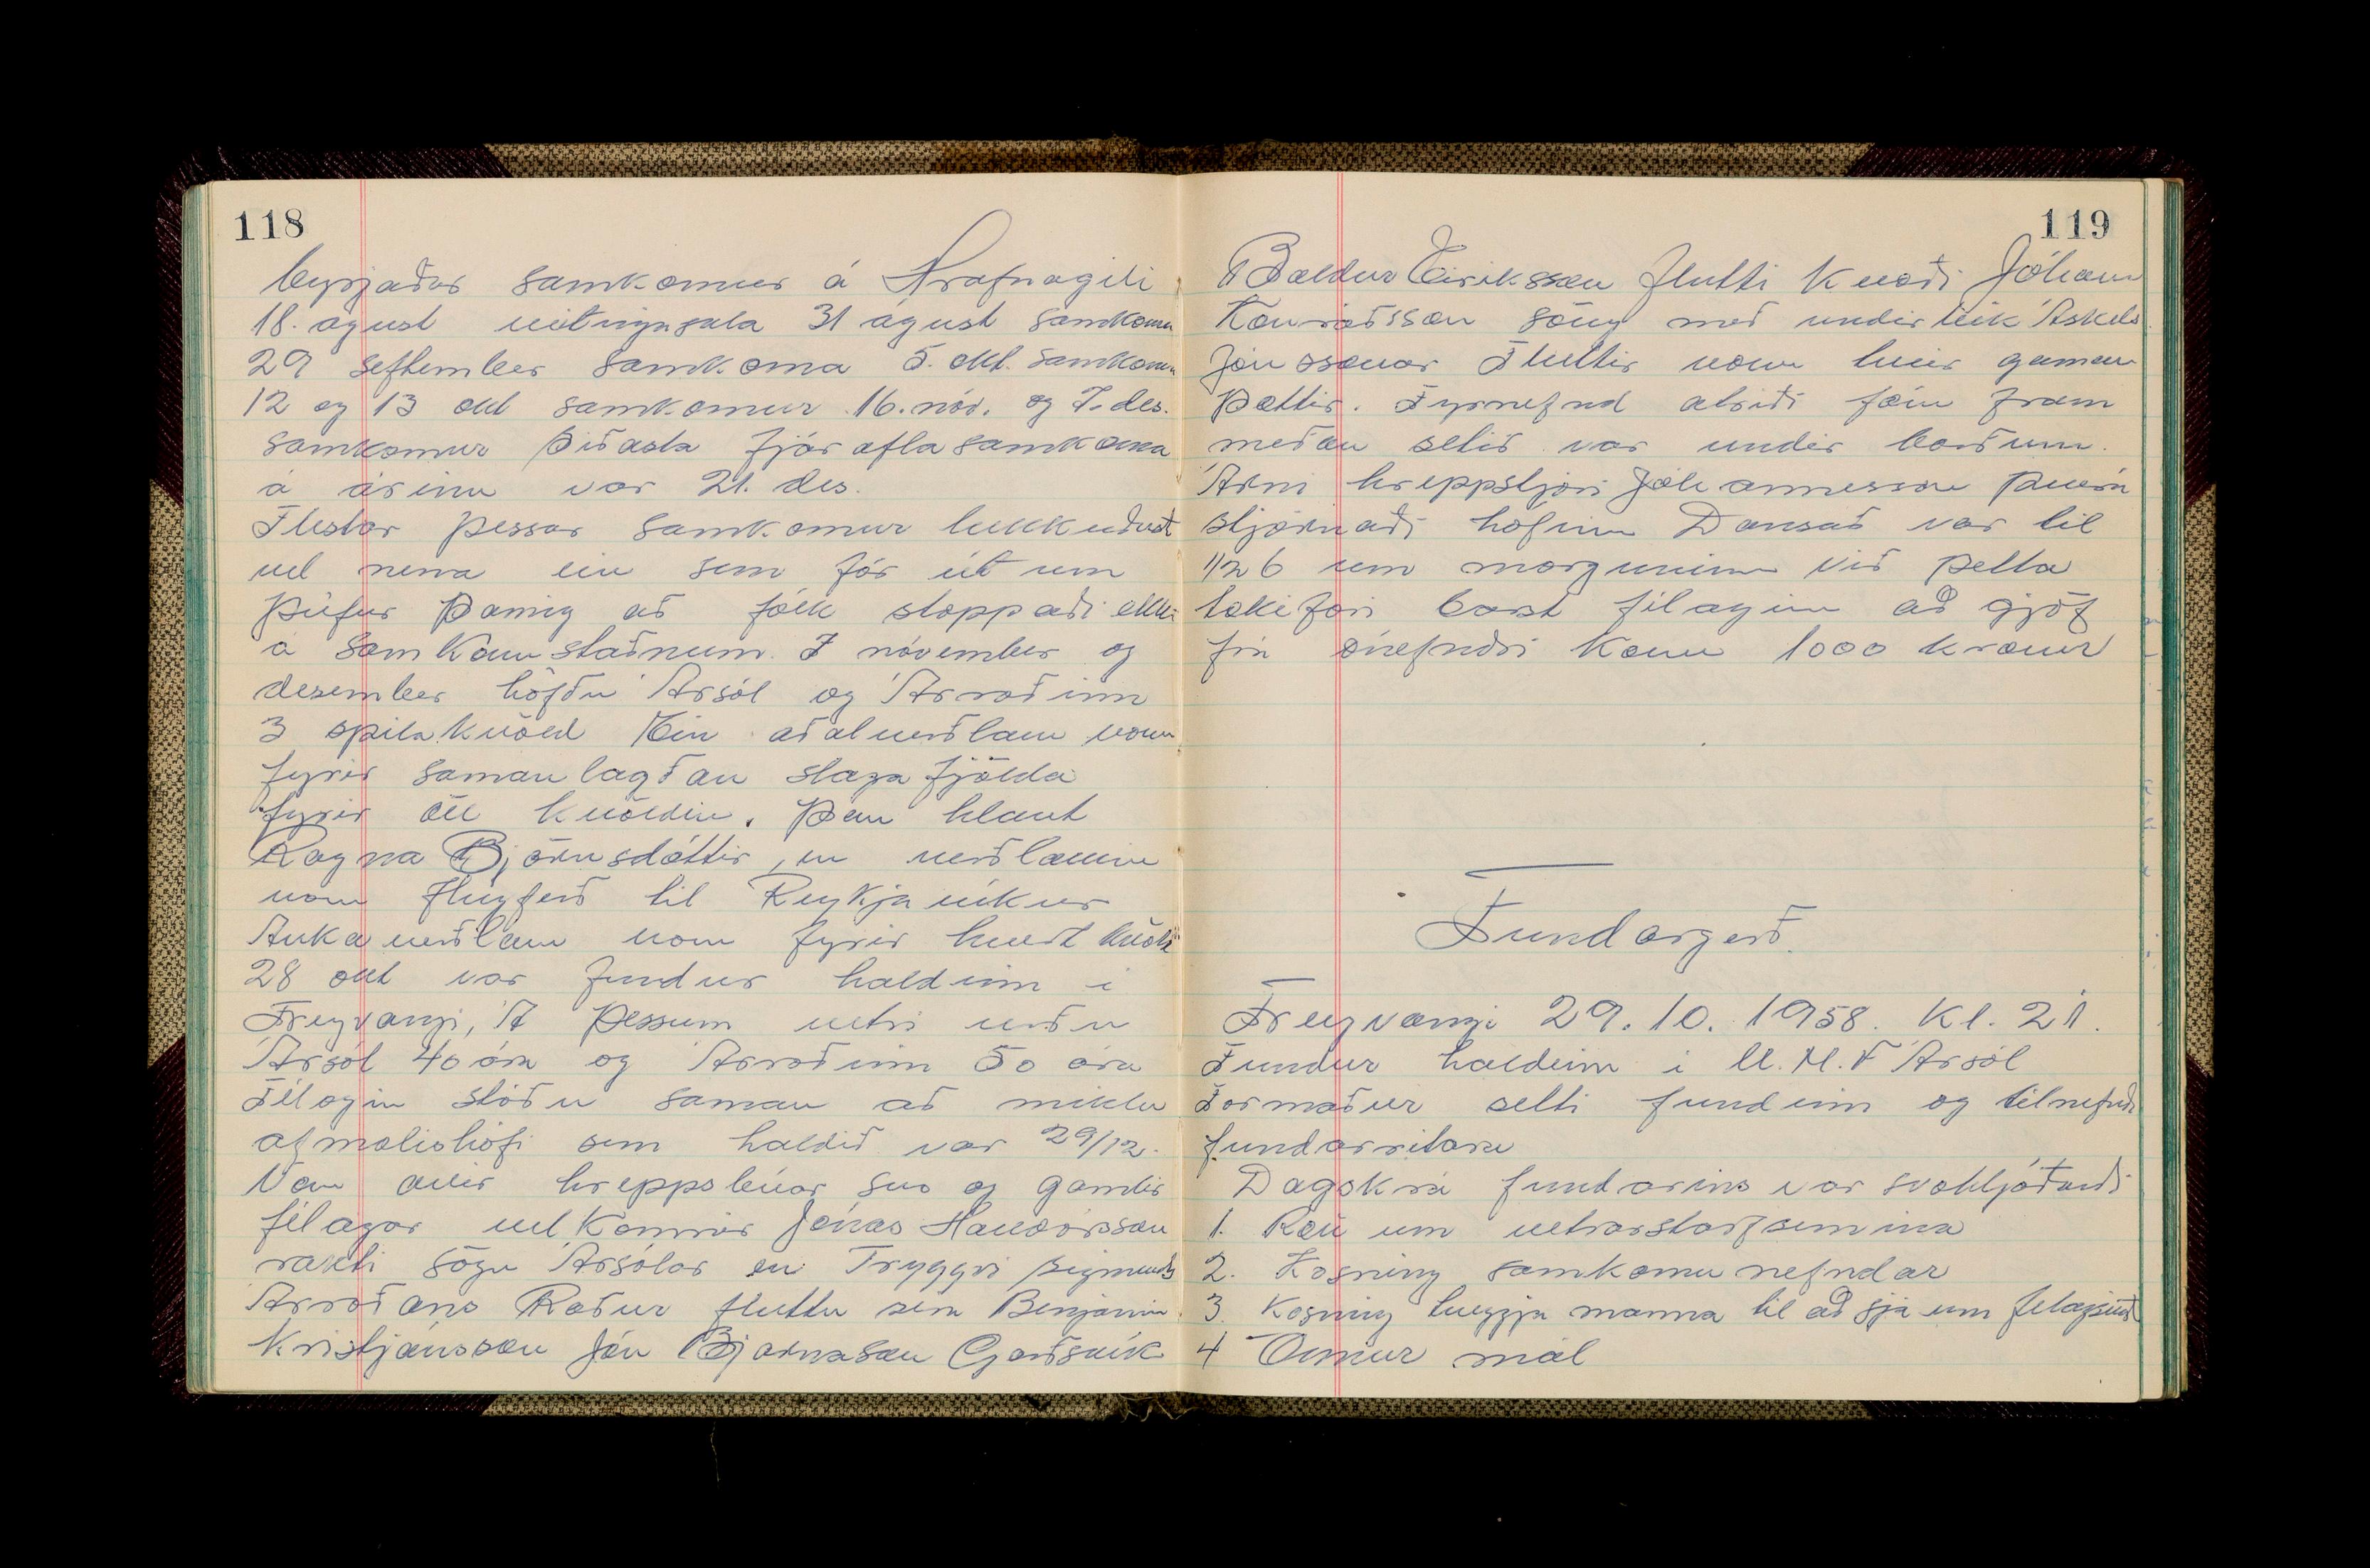 118
byrjaðar samkomur á Hrafnagili
18. ágúst veitingasala 31 ágúst samkoma
29 seftember samkoma 5. okt. samkoma
12 og 13 okt samkomur 16. nóv. og 7. des.
samkomur Síðasta fjáraflasamkoma
á árinu var 21. des.
Flestar þessar samkomur lukkuðust
vel nema ein sem fór út um
þúfur þannig að fólk stoppaði ekki
á samkomustaðnum. Í nóvember og
desember höfðu Ársól og Árroðinn
3 spilakvöld Ein aðalverðlaun voru
fyrir samanlagðan slagafjölda
fyrir öll kvöldin. Þau hlaut
Ragna Björnsdóttir, en verðlaunin
voru flugferð til Reykjavíkur
Aukaverðlaun voru fyrir hvert kvöld
28 okt var fundur haldinn í
Freyvangi, Á þessum vetri urðu
Ársól 40 ára og Árroðinn 50 ára
Félögin stóðu saman að miklu
afmælishófi sem haldið var 29/12.
Voru allir hreppsbúar svo og gamlir
félagar velkomnir Jónas Halldórsson
rakti sögu Ársólar en Tryggvi Sigmunds
Árroðans Ræður fluttu séra Benjamín
Kristjánsson Jón Bjarnason Garðsvík
119
Baldur Eiriksson flutti kvæði Jóhann
Konráðsson söng með undirleik Áskels
Jónssonar Fluttir voru tveir gaman
þættir. Fyrnefnd atriði fóru fram
meðan setið var undir borðum.
Árni hreppstjóri Jóhannesson Þverá
stjórnaði hófinu Dansað var til
1/2 6 um morguninn Við þetta
tækifæri barst félaginu að gjöf
frá ónefndri konu 1000 krónur
Fundargerð.
Freyvangi 29. 10. 1958. Kl. 21.
Fundur haldinn í U.M.F Ársól
Formaður setti fundinn og tilnefndi
fundarritara
Dagskrá fundarins var svohljóðandi
1. Rætt um vetrarstarfsemina
2. Kosning samkomunefndar
3. Kosning tveggja manna til að sjá um felagsvist
4 Önnur mál